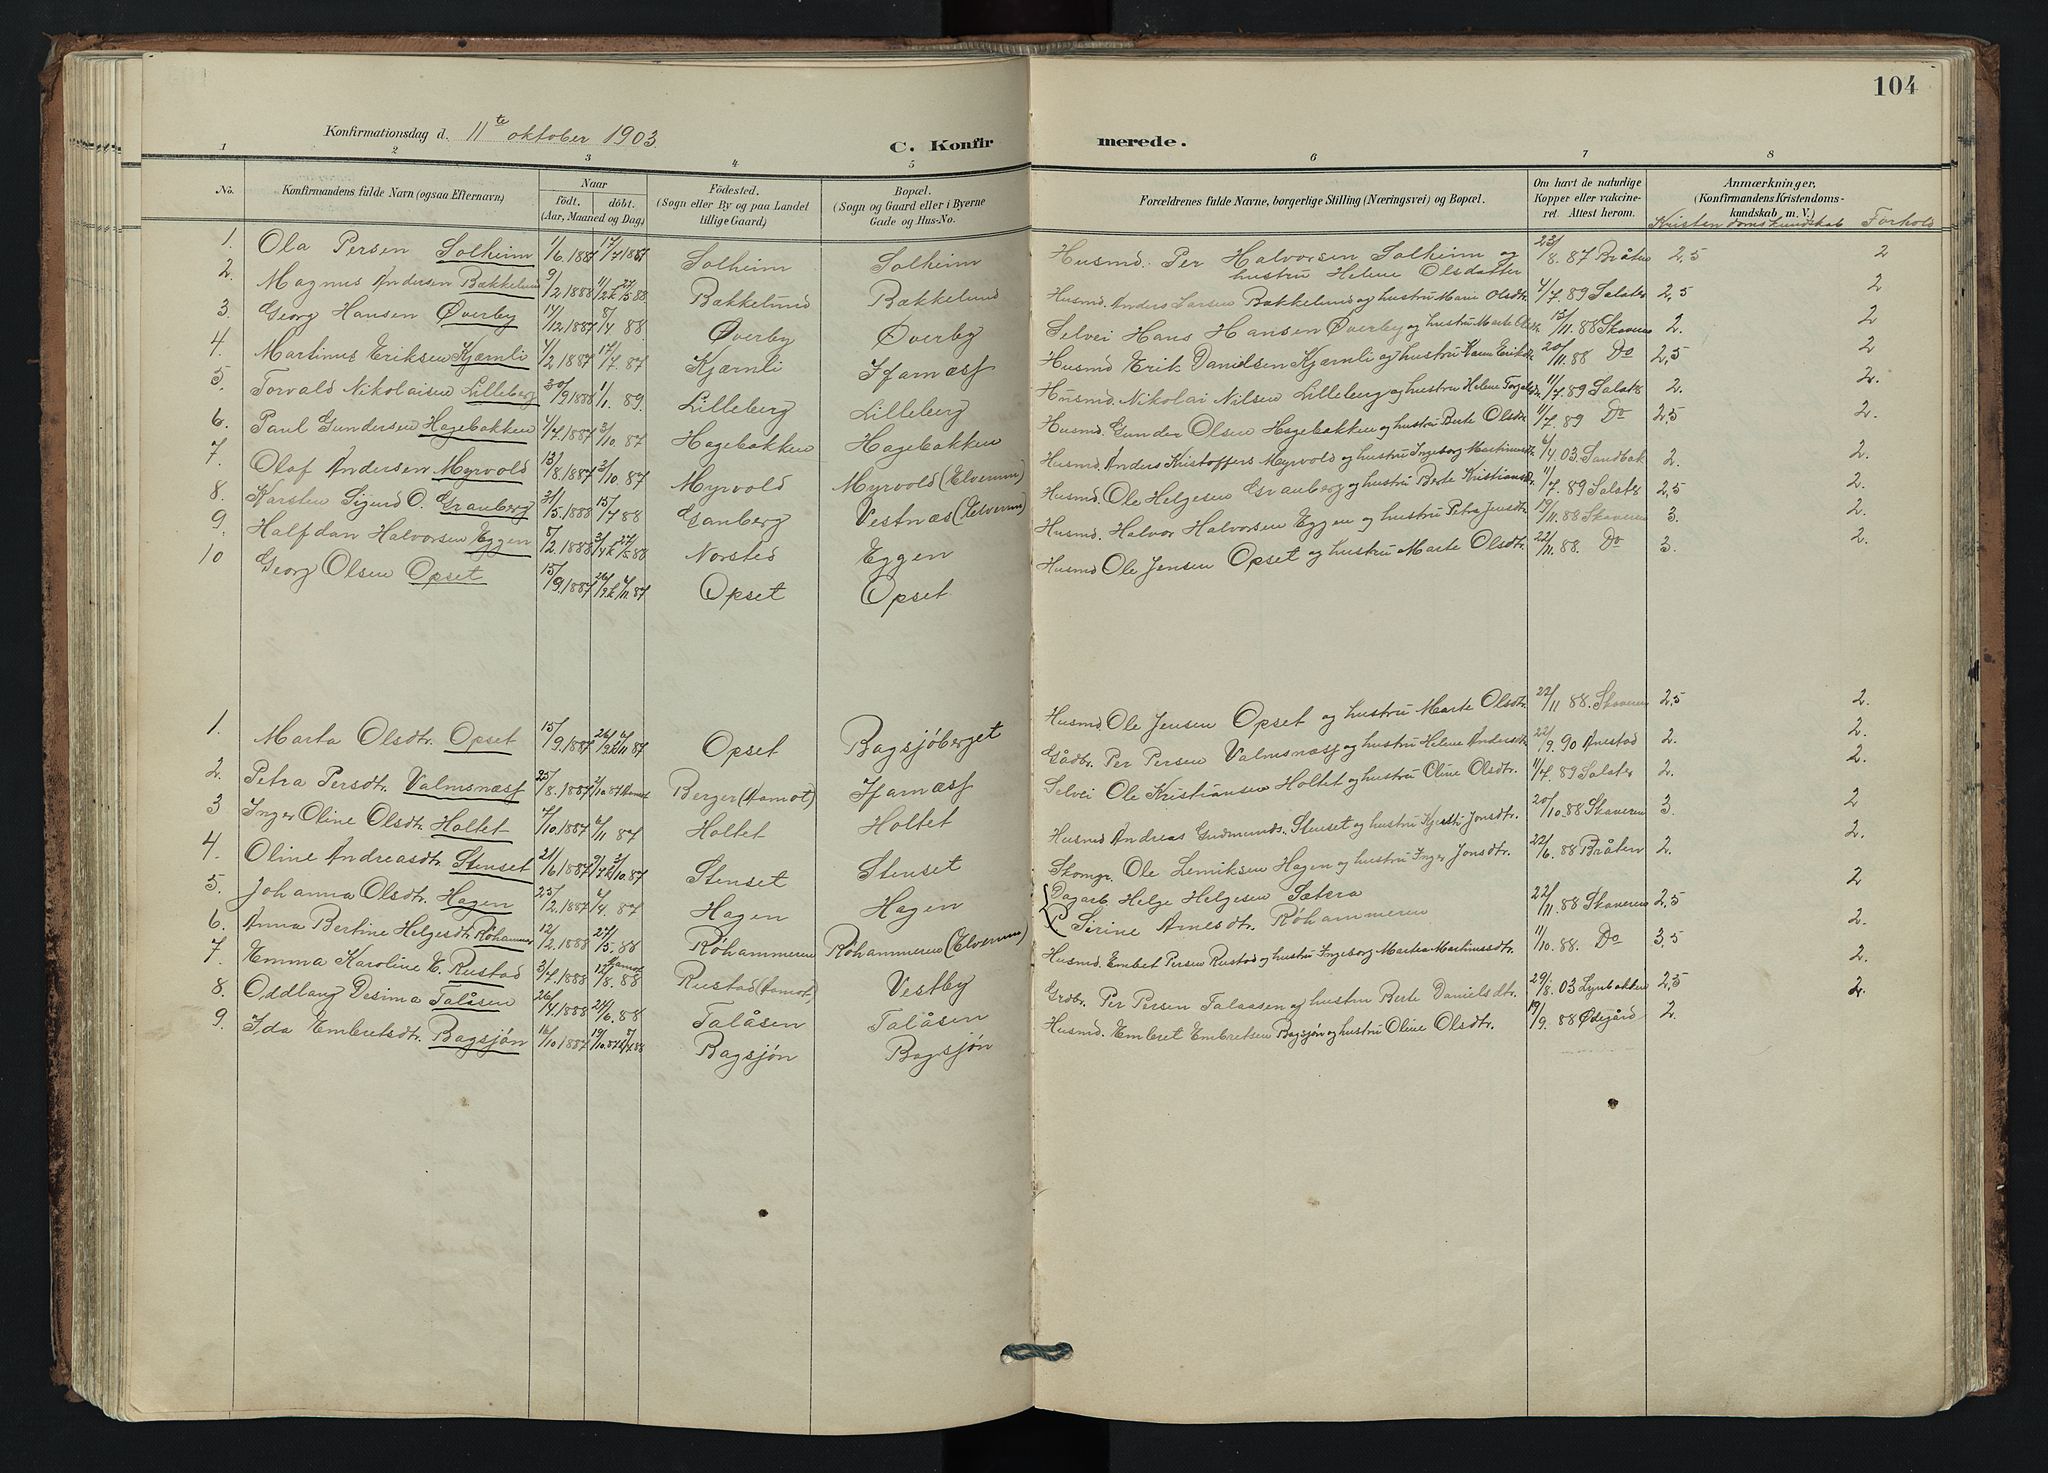 104
Konfirmationsdag d. 11te oktober 1903
C. Konfirmerede.
1 2 3 4 5 6 7 8
No. Konfirmandens fulde Navn (ogsaa Efternavn) Naar födt. döbt. (Aar, Maaned og Dag) Födested. (Sogn eller By og paa Landet tillige Gaard) Bopæl. (Sogn og Gaard eller i Byerne Gade og Hus-No. Forældrenes fulde Navne, borgerlige Stilling (Næringsvei) og Bopæl. Om havt de naturlige Kopper eller vakcineret. Attest herom. Anmærkninger, (Konfirmandens Kristendomskundskab m. V.) Kristendomskundskab Forhold
1. Ola Persen Solheim 1/6 1887 17/7 1887 Solheim Solheim Husmd. Per Halvorsen Solheim og hustru Helene Olsdatter 23/8. 87 Bråten 2,5 2
2. Magnus Andersen Bækkelund 9/2 1888 Bækkelund Bækkelund Husmd. Anders Larsen Bækkelund og hustru Marie Olsdtr. 4/7. 89 Salater 2,5 2
3. Georg Hansen Øverby 17/12 1887 8/4 88 Øverby Øverby Selvei Hans Hansen Øverby og hustru Marte Olsdtr. 13/11. 88 Skaveren 2. 2
4. Martinus Eriksen Kjærnli 4/2 1887 17/7. 87 Kjærnli Ifarnæsf Husmd Erik Danielsen Kjærnli og hustru Karen Eriksdtr. 20/11. 88 Do 2,5 2
5. Torvald Nikolaisen Lilleberg 30/9 1888 1/1. 89 Lilleberg Lilleberg Husmd. Nikolai Nilsen Lilleberg og hustru Helene 11/7. 89 Salater 2. 2.
6. Paul Gundersen Hagebakken 4/7. 1887 3/10. 87 Hagebakken Hagebakken Husmd. Gunder Olsen Hagebakken og hustru Berte Olsdtr. 11/7. 89 Do 2,5 2.
7. Olaf Andersen Myrvold 13/8. 1887 3/10. 87 Myrvold Myrvold (Elverum) Husmd. Anders Kristoffers. Myrvold og hustru Ingeborg Martinusdtr. 6/4. 03. Sandbak 2. 2.
8. Karsten Sigurd O. Granberg 31/5. 1888 15/7 88 Granberg Vestnæs (Elverum) Husmd. Ole Helgesen Granberg og hustru Berte Kristiansdtr. 11/7. 89 Salater 2,5 2.
9. Halfdan Halvorsen Eggen 8/2. 1888 Norsted Eggen Husmd. Halvor Halvorsen Eggen og hustru Petra Jensdtr. 19/11. 88 Skaveren 3. 2.
10 Georg Olsen Opset 15/9. 1887 Opset Opset Husmd Ole Jensen Opset og hustru Marte Olsdtr. 22/11. 88. Do 3. 2.
1. Marta Olsdtr. Opset 15/9. 1887 Opset Bagsjöberget Husmd. Ole Jensen Opset og hustru Marte Olsdtr. 22/11 88. Skaveren 2,5 2.
2. Petra Persdtr. Valmsnæsf 25/8. 1887 2/10 87 Aamot Berger (Aamot) Ifarnæsf Gådbr. Per Persen Valmsnæsf og hustru Helene Andersdtr. 22/9. 90 Anestad 2. 2.
3 Inger Oline Olsdtr. Holtet 7/10. 1887 6/11 87 Holtet Holtet Selvei Ole Kristiansen Holtet og hustru Oline Olsdtr. 11/7. 89 Salater 2. 2.
4. Oline Andreasdtr. Stenset 21/6. 1887 Stenset Stenset Husmd Andreas Gudmunds. Stenset og hustru Kjersti Jonsdtr. 20/10. 88 Skaveren 3. 2
5. Johanna Olsdtr. Hagen 25/2. 1887 6/4. 87 Hagen Hagen Skomgr. Ole Lemiksen Hagen og hustru Inger Jonsdtr. 22/6. 88 Bråten 2. 2.
6. Anna Bertine Helgesdtr. Röhammer 12/2. 1888 27/5. 88 Röhammeren Röhammeren (Elverum) Dagarb. Helge Helgesen Sætera Sirine Arnesdtr. Röhammeren 22/11. 88 Skaveren 2,5 2
7. Emma Karoline E. Rustad 3/7. 1888 Aamot 12/8. 88 Rustad (Aamot) Vestby Husmd. Embet Persen Rustad og hustru Ingeborg Martea Martinusdtr. 11/10. 88. Do 3,5 2.
8. Oddlaug Desima Talåsen 26/4. 1888 24/6. 88 Talåsen Talåsen Grdbr. Per Persen Talaasen og hustru Berte Danielsdtr. 29/8. 03 Lynbakken 2,5 2.
9. Ida Embretsdtr. Bagsjön 16/10. 1887 Bagsjön Bagsjön Husmd. Embret Embretsen Bagsjön og hustru Oline Olsdtr. 19/9. 88 Ødegård 2. 2.